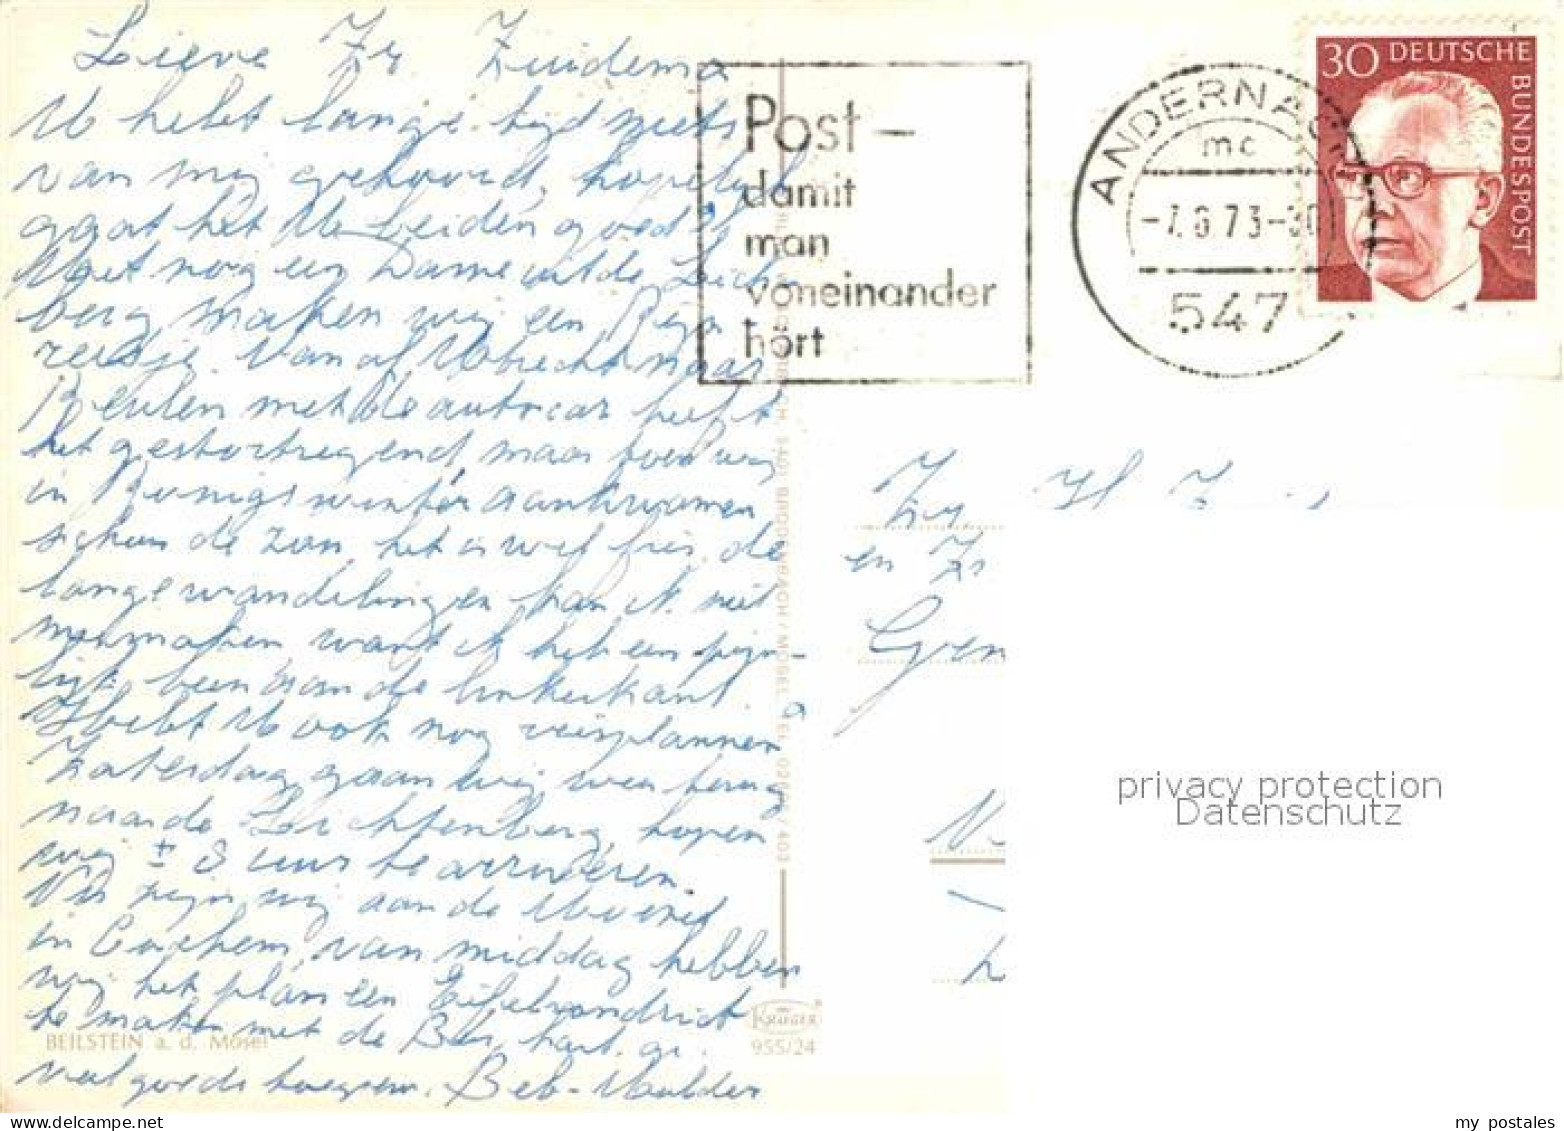 Lieve Zr Zuidema
U hebt lange tijd niets
van mij gehoord, hopelijk
gaat het U beiden goed.
Met nog een Dame uit de Licht
berg maken wij een Rijn
reisje. Vanaf Utrecht naar
Keulen met de autocar heeft
het gestortregend, maar toen wij
in Konigswinter aankwamen
scheen de zon, het is wel fris, de
lange wandelingen kan ik niet
meemaken want ik heb een pijn-
lijk been aan de linkerkant.
Hebt U ook nog reisplannen
Zaterdag gaan wij weer terug
naar de Lichtenberg, hopen
wij ± 8 uur te arriveren.
Nu zijn wij aan de Moezel
in Cochem, van middag hebben
wij het plan een Eifelrondrit
te maken met de Bus, hart. gr.
veel goeds toegew. Beb-Mulder
Post –
damit
man
voneinander
hört
ANDERNACH
mc
-7.6.73-
547
30 DEUTSCHE
BUNDESPOST
Zr H Z
en Zr
BRODENBACH / MOSEL
BEILSTEIN a. d. Mosel
KRÜGER
955/24
privacy protection
Datenschutz
my postales